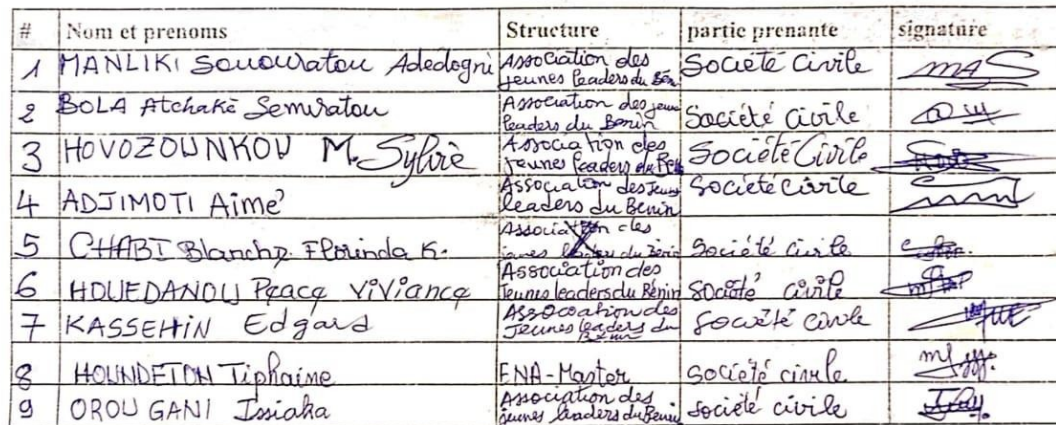 # Nom et prenoms Structure partie prenante signature
1 MANLIKI Sououratou Adédogni Association des jeunes leaders du Bén Société Civile
2 BOLA Atchakè Semiratou Association des jeune leaders du Benin Société civile
3 HOVOZOUNKOU M. Sylvie Association des jeunes leaders du Be Société Civile
4 ADJIMOTI Aimé Association des Jeunes leaders du Benin Société civile
5 CHABI Blanche Florinda K. Association des jeunes leaders du Bénin Société civile
6 HOUEDANOU Peace Viviance Association des Jeunes leaders du Bénin Société civile
7 KASSEHIN Edgard Association des Jeunes leaders du Bénin Société civile
8 HOUNDETON Tiphaine ENA-Master Société civile
9 OROU GANI Issiaka Association des jeunes leaders du Benin société civile